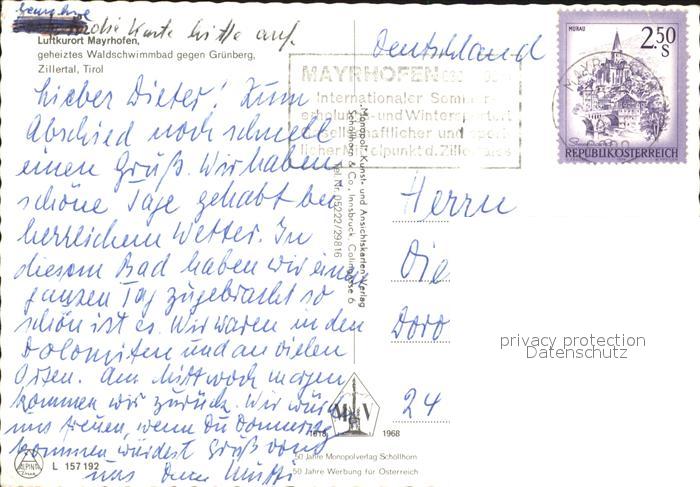 bewahre
die Karte bitte auf.
Luftkurort Mayrhofen,
geheiztes Waldschwimmbad gegen Grünberg,
Zillertal, Tirol
Lieber Dieter! Zum
Abschied noch schnell
einen Gruß. Wir haben
schöne Tage gehabt bei
herrlichem Wetter. In
diesem Bad haben wir einen
ganzen Tag zugebracht so
schön ist es. Wir waren in den
Dolomiten und an vielen
Orten. Am Mittwoch morgen
kommen wir zurück. Wir würden
uns freuen, wenn Du Donnerstag
kommen würdest Gruß von
uns Deine Mutti
ALPINA
DRUCK
L 157 192
Monopol: Kunst- und Ansichtskarten-Verlag
Schöllhorn & Co., Innsbruck, Colingasse 6
Tel. Nr. 05222/29816
M V
1918 1968
50 Jahre Monopolverlag Schöllhorn
50 Jahre Werbung für Österreich
Deutschland
MAYRHOFEN
Internationaler Sommer-
erholungs- und Wintersportort
gesellschaftlicher und sport-
licher Mittelpunkt d. Zillertales
MURAU
2.50
S
REPUBLIK ÖSTERREICH
Herrn
Die
Doro
24
privacy protection
Datenschutz